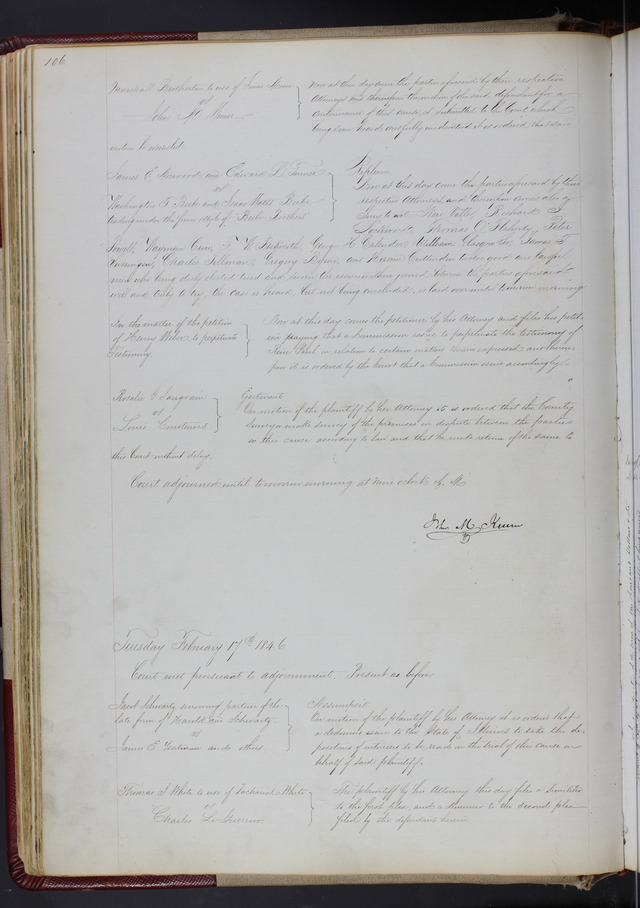 106
Marshall Brotherton to use of
vs
John M
Now at this day come the parties aforesaid by their respective
Attorneys and thereupon the motion of the said defendant for a
continuance of this cause is submitted to the Court which
being seen heard and fully understood it is ordered that said
motion be
James C. and Edward D.
vs
Washington F. Beebe and Beebe
trading under the firm & style of Beebe Brothers
Replevin
Now at this day come the parties aforesaid by their
respective Attorneys, and thereupon comes also a
Jury to wit Richard
Thomas O. Flaherty, Peter
George H. Callender, William Glasgow Jr, James F.
Charles Tillman, Gregory Byrne, and Hiram Cuttenden twelve good and lawful
men who being duly elected tried and sworn the issue within joined between the parties aforesaid
well and truly to try, the case is heard, but not being concluded, is laid over until tomorrow morning
In the matter of the petition
of Henry to perpetuate
Testimony
Now at this day comes the petitioner by his Attorney and files his petit-
ion praying that a Commission issue to perpetuate the testimony of
in relation to certain matters therein expressed and there-
upon it is ordered by the Court that a Commission issue accordingly.
Rosalie G. Saugrain
vs
Louis
Ejectment
On motion of the plaintiff by her Attorney it is ordered that the County
Surveyor make survey of the premises in dispute between the parties
in this cause according to law and that he make return of the same to
this Court without delay.
Court adjourned until tomorrow morning at nine o'clock A. M.
John M. Krum
Tuesday February 17th 1846
Court met pursuant to adjournment. Present as before
Jacob Schwartz surviving partner of the
late firm of and Schwartz
vs
James E. and others
Assumpsit
On motion of the plaintiff by his Attorney it is ordered that
a dedimus issue to the State of Illinois to take the de-
positions of witnesses to be read in the trial of this cause on
behalf of said plaintiff.
Thomas J. White to use of Zachariah White
vs
Charles L.
The plaintiff by his Attorney this day files a Similiter
to the first plea, and a demurrer to the second plea
filed by the defendant herein